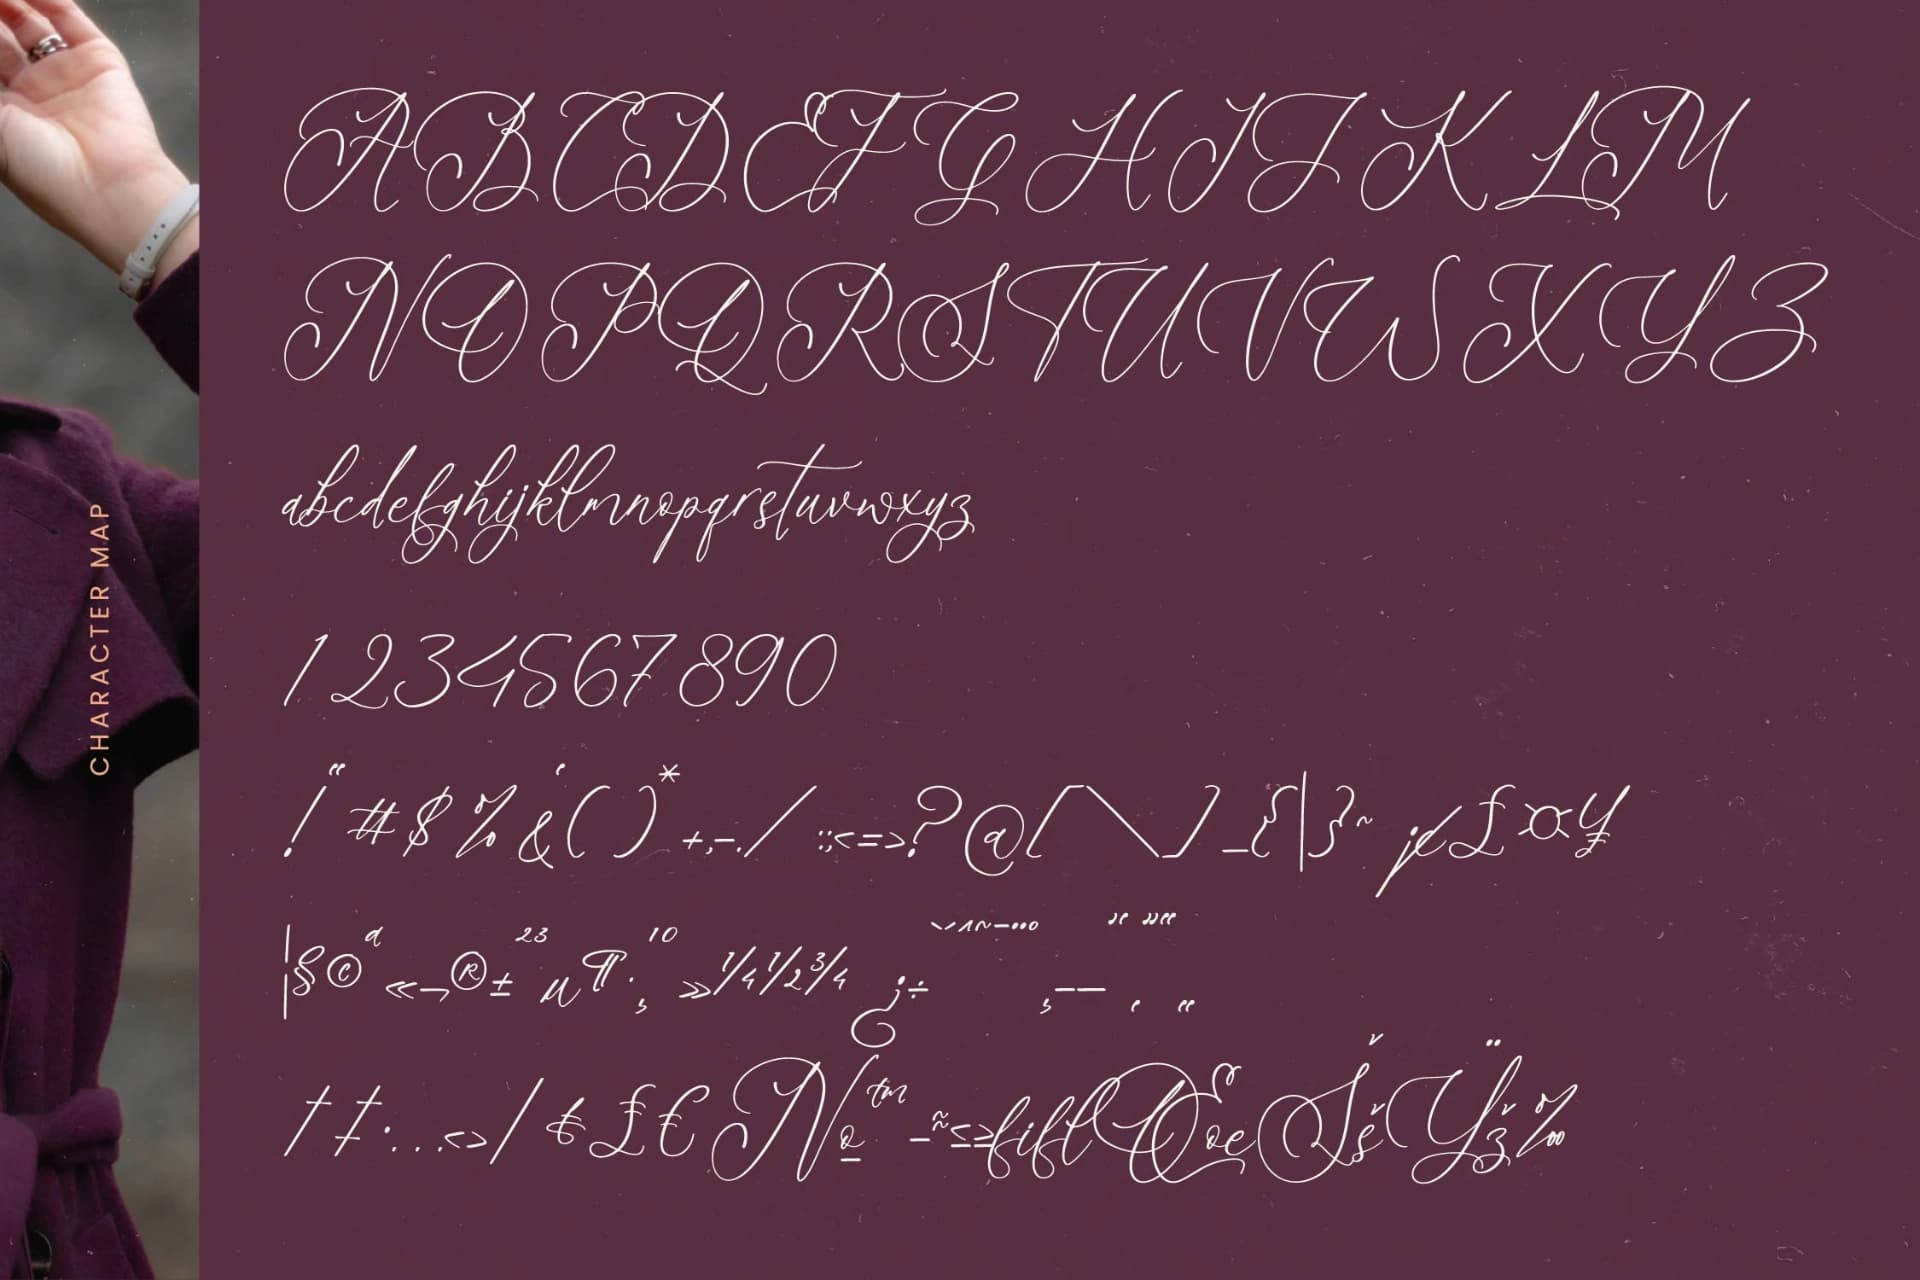 CHARACTER MAP
ABCDEFGHIJKLM
NOPQRSTUVWXYZ
abcdefghijklmnopqrstuvwxyz
1234567890
!"#$%&'()*+,-./:;<=>?@[\]_{|}~¡¢£¤¥
¦§©ª«¬®±²³µ¶·¸¹º»¼½¾¿÷
†‡•…‹›⁄€₤€№™−≈≤≥fiflŒœŠšŸž‰